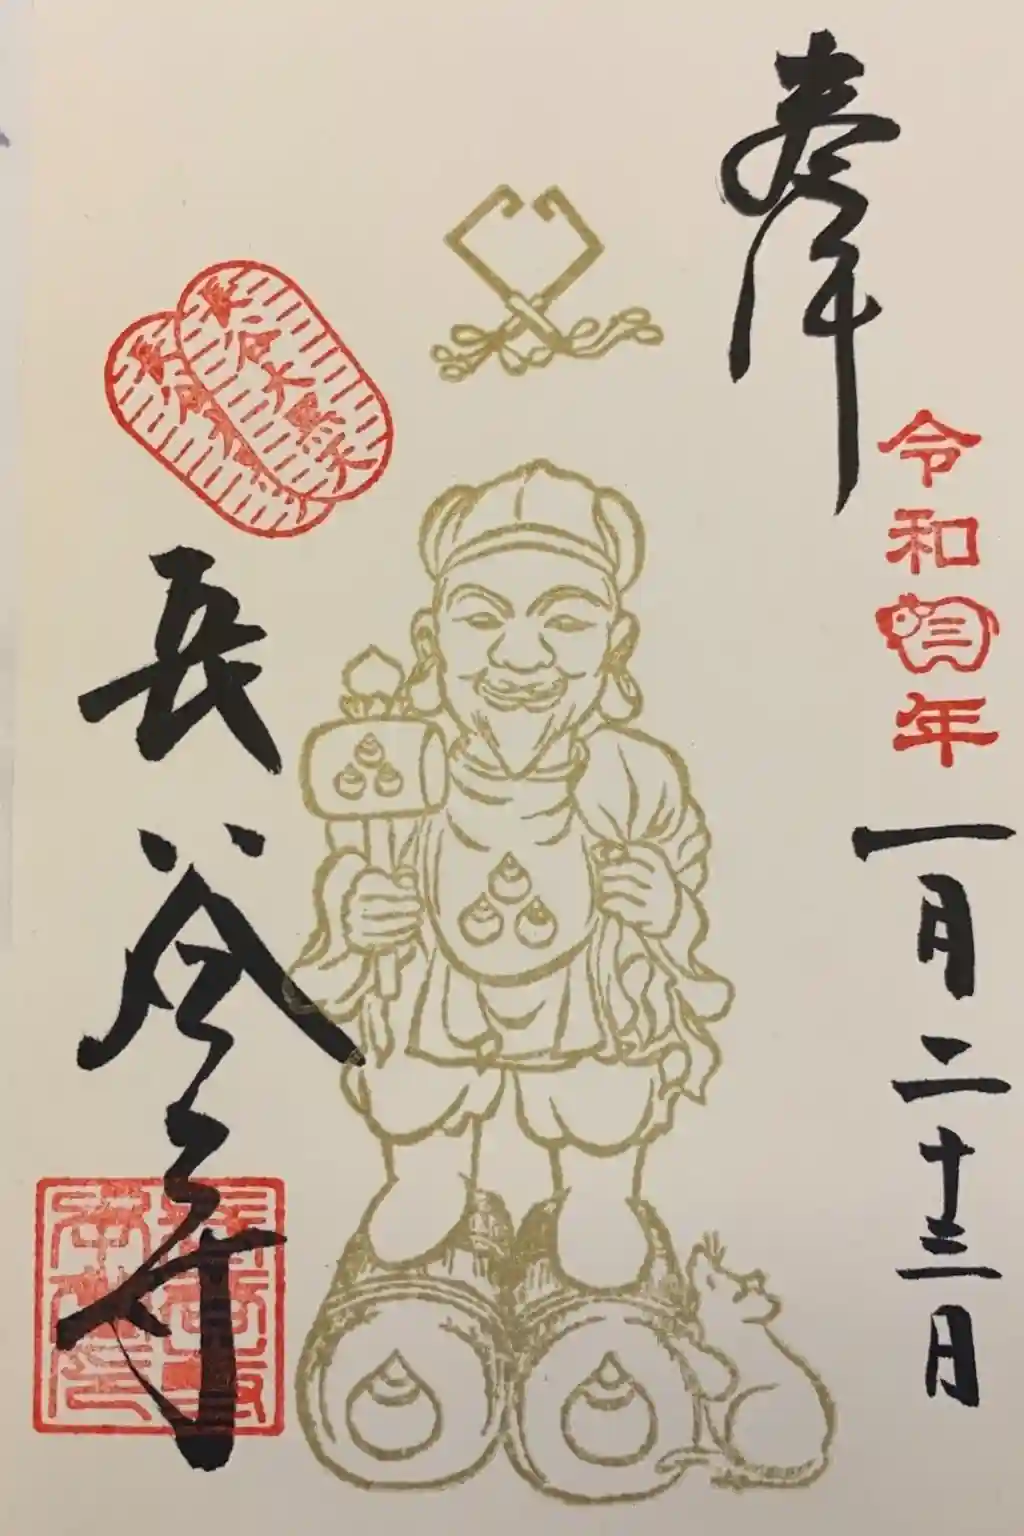 奉拝
令和三年
一月二十三日
長谷大黒天
長谷寺